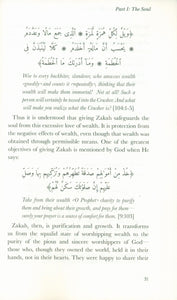 Part I: The Soul
وَيْلٌ لِّكُلِّ هُمَزَةٍ لُّمَزَةٍ ۞ الَّذِي جَمَعَ مَالًا وَعَدَّدَهُ
۞ يَحْسَبُ أَنَّ مَالَهُ أَخْلَدَهُ ۞ كَلَّا لَيُنبَذَنَّ فِي
الْحُطَمَةِ ۞ وَمَا أَدْرَاكَ مَا الْحُطَمَةُ ﴾
Woe to every backbiter, slanderer, who amasses wealth
«greedily» and counts it «repeatedly», thinking that their
wealth will make them immortal! Not at all! Such a
person will certainly be tossed into the Crusher. And what
will make you realize what the Crusher is? [104:1-5]
Thus it is understood that giving Zakah safeguards the
soul from this excessive love of wealth. It is protection from
the negative effects of wealth, even though that wealth was
obtained through permissible means. One of the greatest
objectives of giving Zakah is mentioned by God when He
says:
﴿ خُذْ مِنْ أَمْوَالِهِمْ صَدَقَةً تُطَهِّرُهُمْ وَتُزَكِّيهِم بِهَا وَصَلِّ
عَلَيْهِمْ إِنَّ صَلَاتَكَ سَكَنٌ لَّهُمْ ﴾
Take from their wealth «O Prophet» charity to purify
them and bring about their growth, and pray for them—
surely your prayer is a source of comfort for them. [9:103]
Zakah, then, is purification and growth. It transforms
us from the stupid state of worshipping wealth to the
purity of the pious and sincere worshippers of God—
those who, though they owned the world, held it in their
hands, not in their hearts. They were happy to share their
31